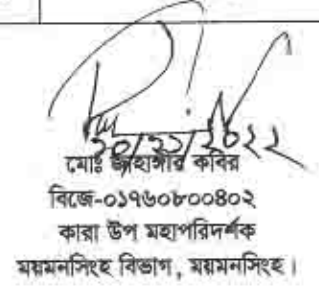 ৩০/১১/২০২২
মোঃ জাহাঙ্গীর কবির
বিজে-০১৭৬০৮০০৪০২
কারা উপ মহাপরিদর্শক
ময়মনসিংহ বিভাগ, ময়মনসিংহ।